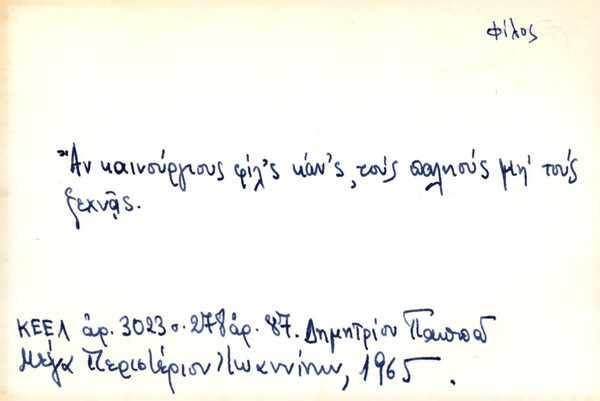 φίλος
Ἄν καινούργιους φίλ'ς κάν'ς, τούς παλιούς μή τούς
ξεχνᾷς.
ΚΕΕΛ ἀρ. 3023 σ. 278 ἀρ. 87. Δημητρίου Παππᾶ
Μέγα Περιστέριον Ἰωαννίνων, 1965.